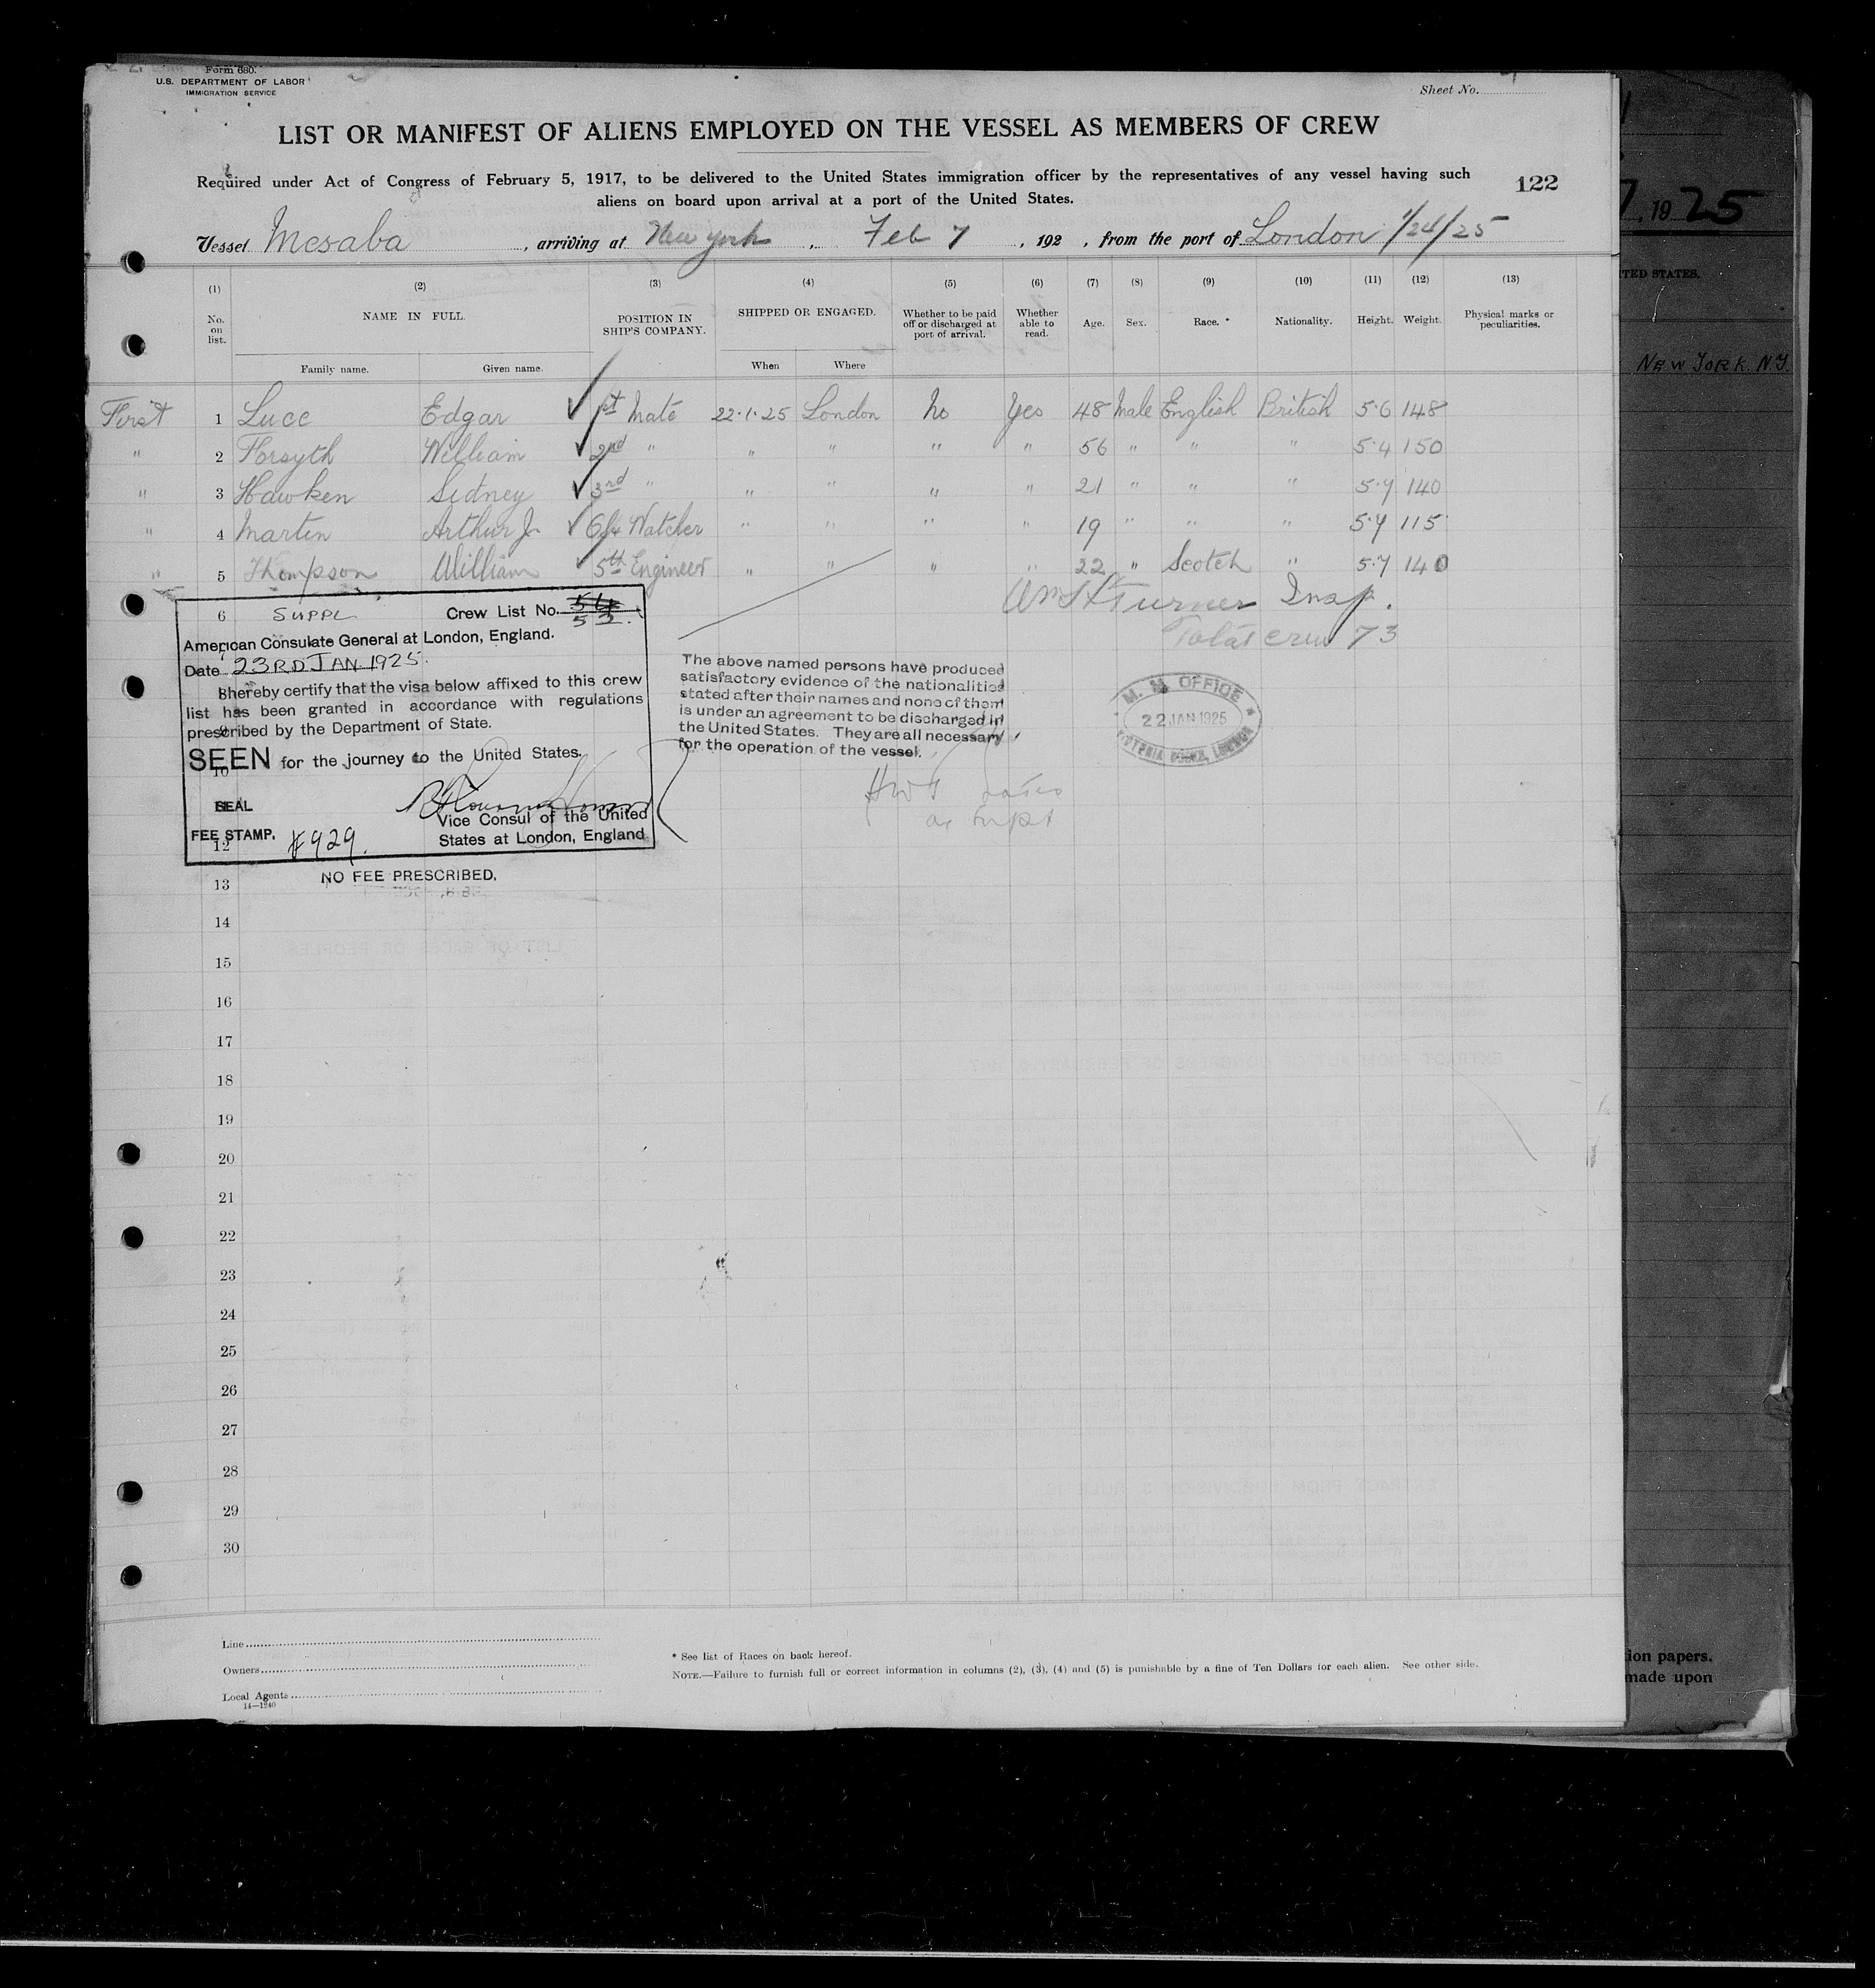 Form 680.
U.S. DEPARTMENT OF LABOR
IMMIGRATION SERVICE
Sheet No.
LIST OR MANIFEST OF ALIENS EMPLOYED ON THE VESSEL AS MEMBERS OF CREW
Required under Act of Congress of February 5, 1917, to be delivered to the United States immigration officer by the representatives of any vessel having such
aliens on board upon arrival at a port of the United States.
122
Vessel Mesaba, arriving at New York, Feb 7, 192 , from the port of London 1/24/25
(1) (2) (3) (4) (5) (6) (7) (8) (9) (10) (11) (12) (13)
No. on list. NAME IN FULL. POSITION IN SHIP'S COMPANY. SHIPPED OR ENGAGED. Whether to be paid off or discharged at port of arrival. Whether able to read. Age. Sex. Race. * Nationality. Height. Weight. Physical marks or peculiarities.
Family name. Given name. When Where
First 1 Luce Edgar 1st Mate 22.1.25 London No Yes 48 Male English British 5.6 148
" 2 Forsyth William 2nd " " " " " 56 " " " 5.4 150
" 3 Hawken Sidney 3rd " " " " " 21 " " " 5.7 140
" 4 Martin Arthur J. Watcher " " " " 19 " " " 5.7 115
" 5 Thompson William 5th Engineer " " " " 22 " Scotch " 5.7 140
Turner Insp.
Total crew 73
6 SUPPL Crew List No. 54 52
American Consulate General at London, England.
Date 23RD JAN. 1925.
I hereby certify that the visa below affixed to this crew
list has been granted in accordance with regulations
prescribed by the Department of State.
SEEN for the journey to the United States.
10
SEAL
Vice Consul of the United
FEE STAMP. 929.
States at London, England
12
NO FEE PRESCRIBED.
The above named persons have produced
satisfactory evidence of the nationalities
stated after their names and none of them
is under an agreement to be discharged in
the United States. They are all necessary
for the operation of the vessel.
M. M. OFFICE
22 JAN 1925
VICTORIA DOCKS, LONDON
13
14
15
16
17
18
19
20
21
22
23
24
25
26
27
28
29
30
Line
Owners
Local Agents
14—1240
* See list of Races on back hereof.
NOTE.—Failure to furnish full or correct information in columns (2), (3), (4) and (5) is punishable by a fine of Ten Dollars for each alien. See other side.
7, 1925
TED STATES.
NEW YORK. N.Y.
ion papers.
made upon